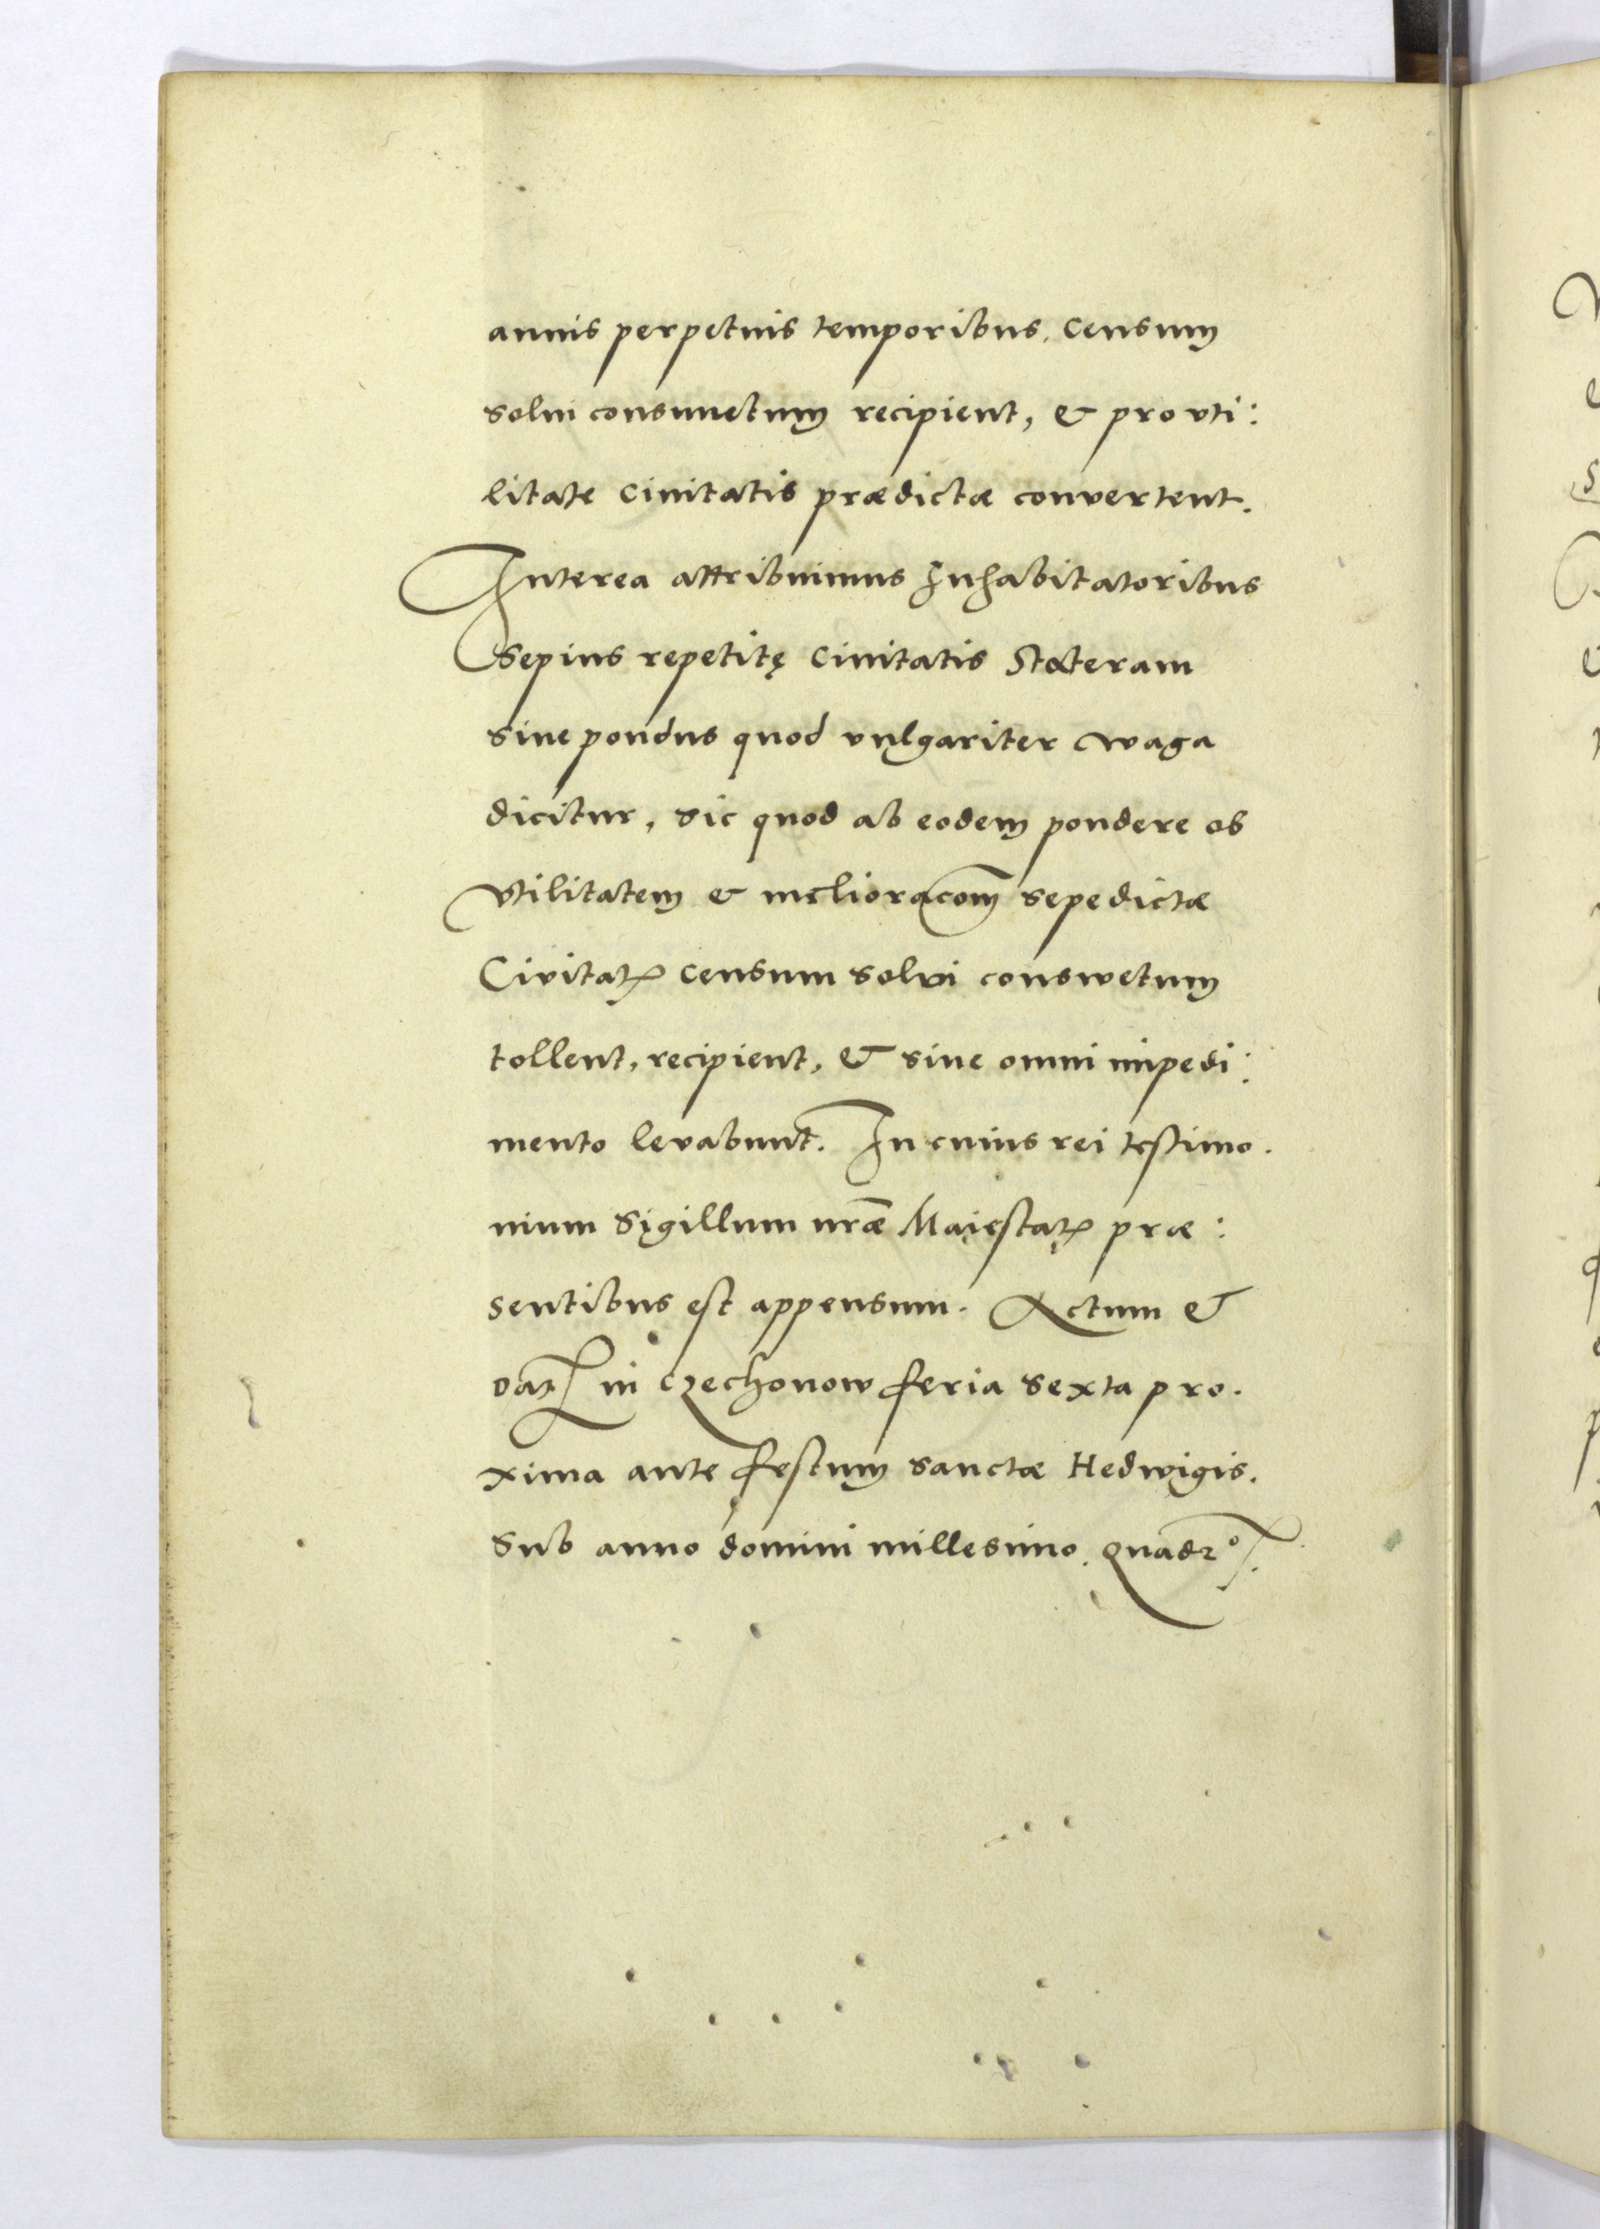 annis perpetuis temporibus. censum
solui consuuetum recipient, & pro vti:
litate ciuitatis prædictæ convertent.
Interea attribuimus Inhabitatoribus
sepius repetitę ciuitatis Stateram
siue pondus quod vulgariter waga
dicitur, sic quod ab eodem pondere ob
vtilitatem & melioracõm sepedictæ
Civitatꝭ censum solvi conswetum
tollent, recipient, & sine omni impedi:
mento levabunt. In cuius rei testimo.
nium Sigillum nræ̃ Maiestatꝭ præ:
sentibus est appensum. Actum &
datꝭ in Czechonow feria sexta pro.
xima ante festum sanctæ Hedwigis.
Sub anno domini millesimo. Quadrº.